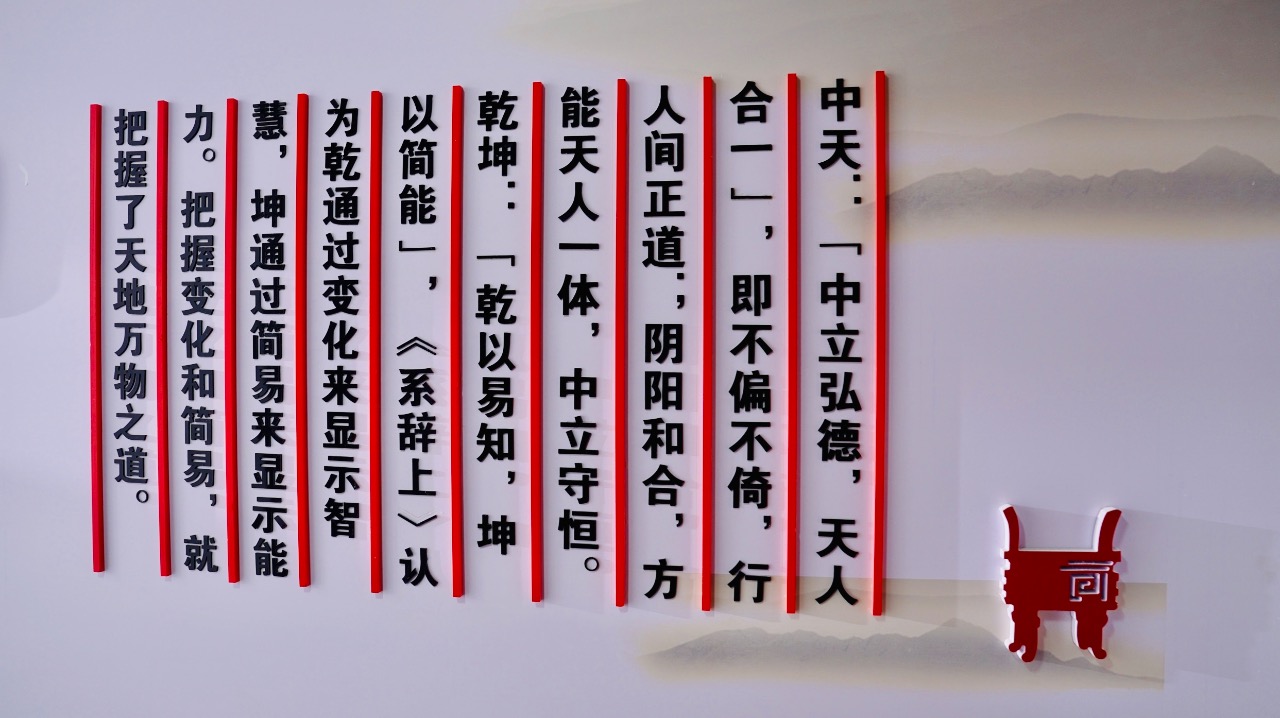 中天：「中立弘德，天人
合一」，即不偏不倚，行
人间正道；阴阳和合，方
能天人一体，中立守恒。
乾坤：「乾以易知，坤
以简能」，《系辞上〉认
为乾通过变化来显示智
慧，坤通过简易来显示能
力。把握变化和简易，就
把握了天地万物之道。